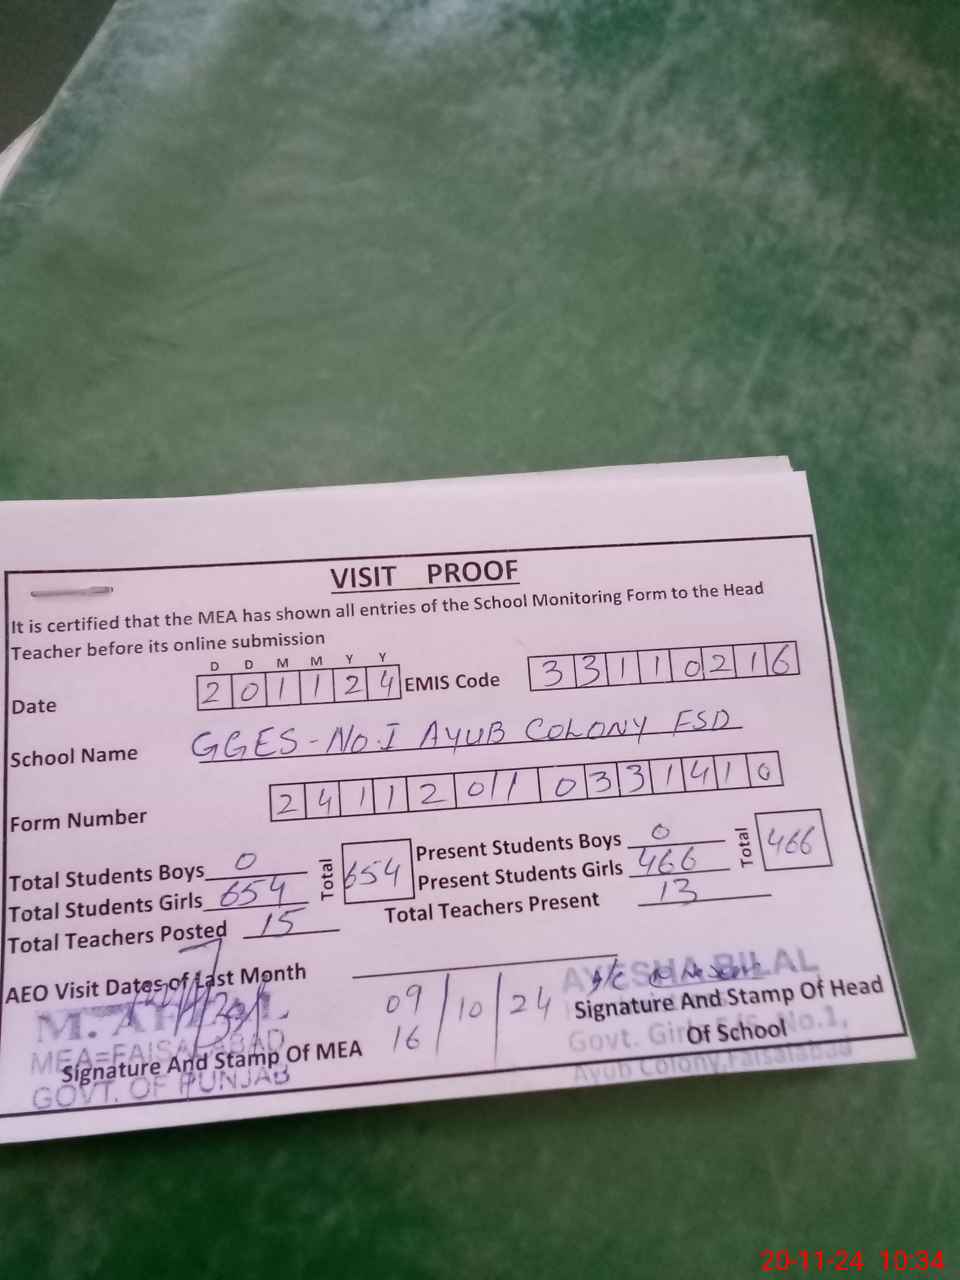 VISIT PROOF
It is certified that the MEA has shown all entries of the School Monitoring Form to the Head
Teacher before its online submission
D D M M Y Y
Date 2 0 1 1 2 4 EMIS Code 3 3 1 1 0 2 1 6
School Name GGES-No.I AYUB COLONY FSD
Form Number 2 4 1 1 2 0 1 1 0 3 3 1 4 1 0
Total Students Boys 0 Total 654 Present Students Boys 0 Total 466
Total Students Girls 654 Present Students Girls 466
Total Teachers Posted 15 Total Teachers Present 13
AEO Visit Dates of Last Month
09 / 10 / 24
16
AYESHA BILAL
Signature And Stamp Of Head
Of School
Govt. No.1,
Ayub Colony, Faisalabad
M.
MEA=FAISALABAD
Signature And Stamp Of MEA
GOVT. OF PUNJAB
20-11-24 10:34